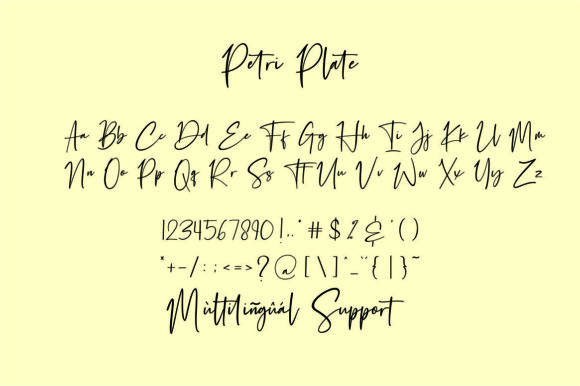 Petri Plate
Aa Bb Cc Dd Ee Ff Gg Hh Ii Jj Kk Ll Mm
Nn Oo Pp Qq Rr Ss Tt Uu Vv Ww Xx Yy Zz
1234567890!..'#$%&'()
*+-/:;<=>?@[\]^_`¨{|}~
Mùltilingûál Support